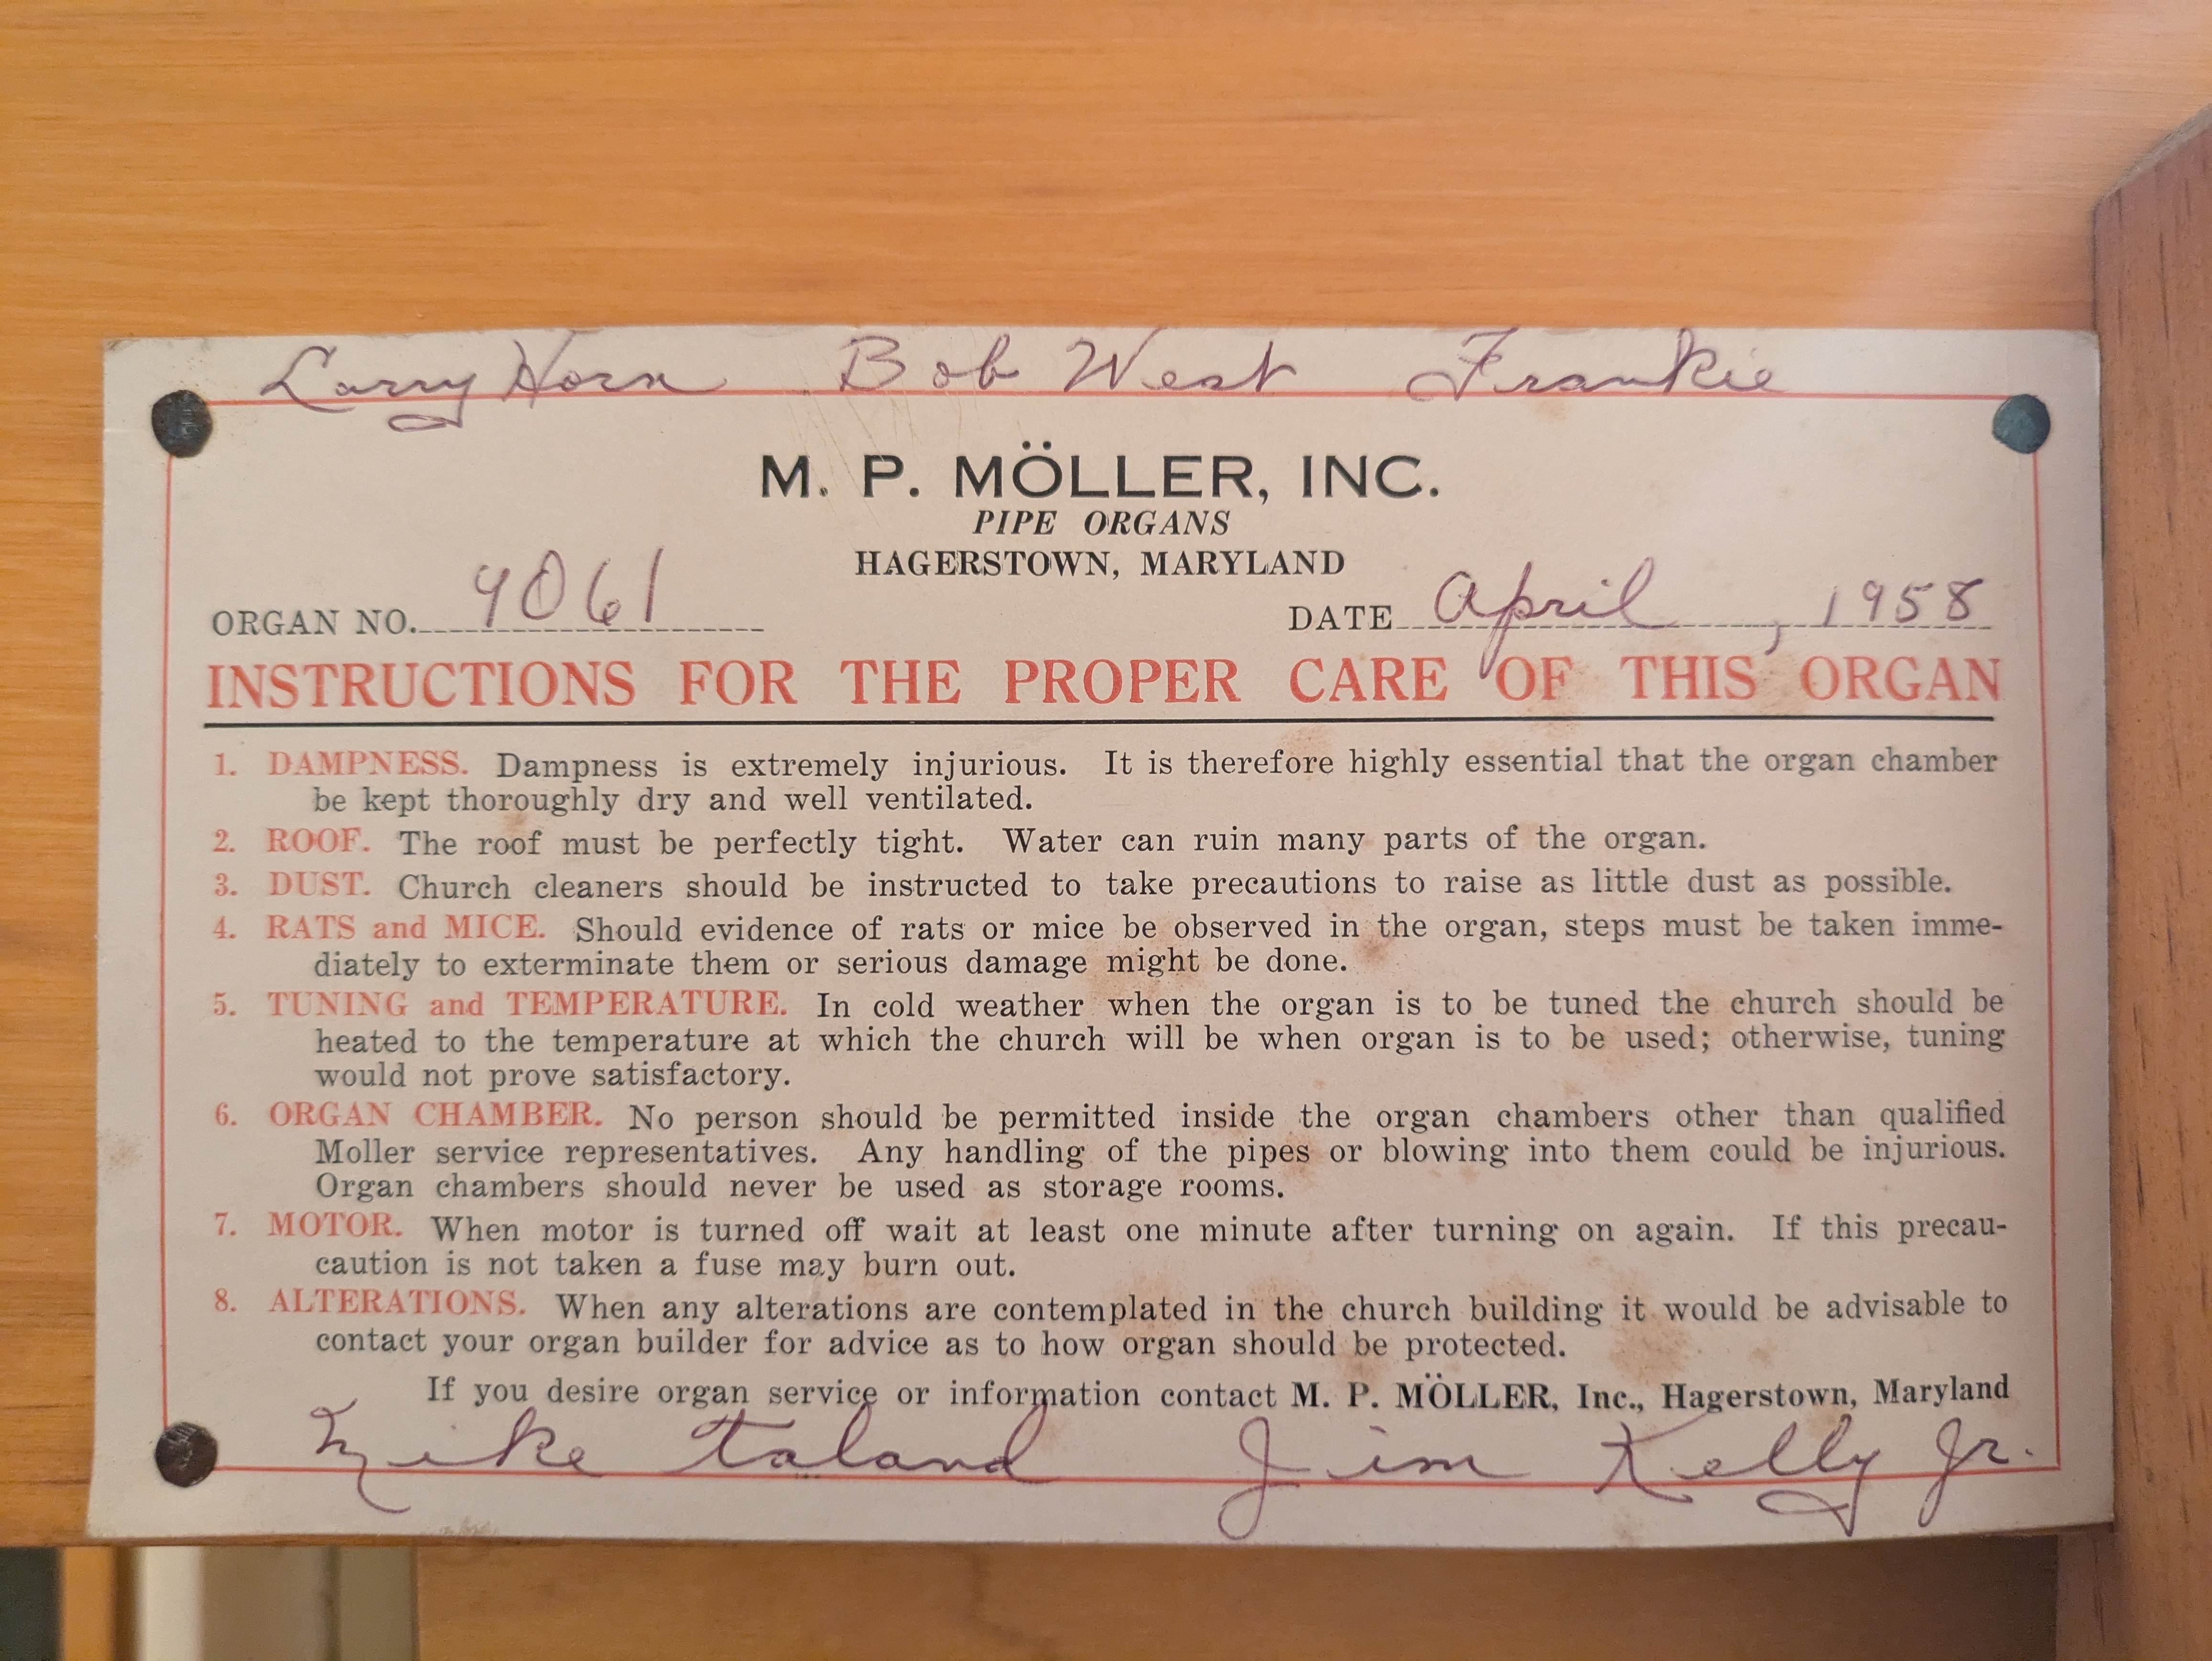 Larry Horn Bob West Frankie
M. P. MÖLLER, INC.
PIPE ORGANS
HAGERSTOWN, MARYLAND
ORGAN NO. 9061 DATE April, 1958
INSTRUCTIONS FOR THE PROPER CARE OF THIS ORGAN
1. DAMPNESS. Dampness is extremely injurious. It is therefore highly essential that the organ chamber
be kept thoroughly dry and well ventilated.
2. ROOF. The roof must be perfectly tight. Water can ruin many parts of the organ.
3. DUST. Church cleaners should be instructed to take precautions to raise as little dust as possible.
4. RATS and MICE. Should evidence of rats or mice be observed in the organ, steps must be taken imme-
diately to exterminate them or serious damage might be done.
5. TUNING and TEMPERATURE. In cold weather when the organ is to be tuned the church should be
heated to the temperature at which the church will be when organ is to be used; otherwise, tuning
would not prove satisfactory.
6. ORGAN CHAMBER. No person should be permitted inside the organ chambers other than qualified
Moller service representatives. Any handling of the pipes or blowing into them could be injurious.
Organ chambers should never be used as storage rooms.
7. MOTOR. When motor is turned off wait at least one minute after turning on again. If this precau-
caution is not taken a fuse may burn out.
8. ALTERATIONS. When any alterations are contemplated in the church building it would be advisable to
contact your organ builder for advice as to how organ should be protected.
If you desire organ service or information contact M. P. MÖLLER, Inc., Hagerstown, Maryland
Mike Taland Jim Kelly Jr.